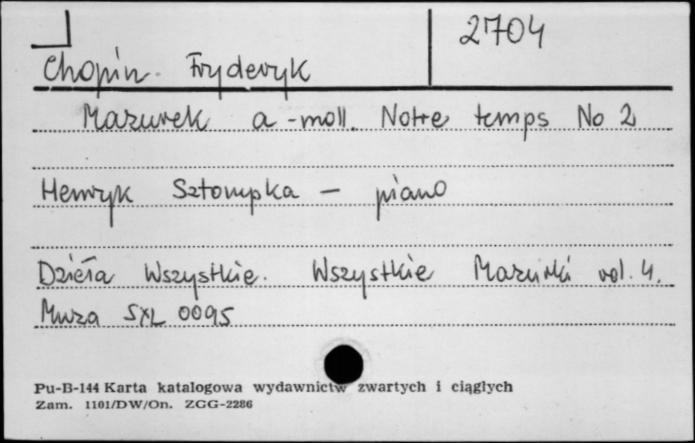 2704
Chopin. Fryderyk
Mazurek a-moll. Notre temps No 2
Henryk Sztompka – piano
Dzieła Wszystkie. Wszystkie Mazurki vol. 4.
Muza SXL 0095
Pu-B-144 Karta katalogowa wydawnictw zwartych i ciągłych
Zam. 1101/DW/On. ZGG-2286